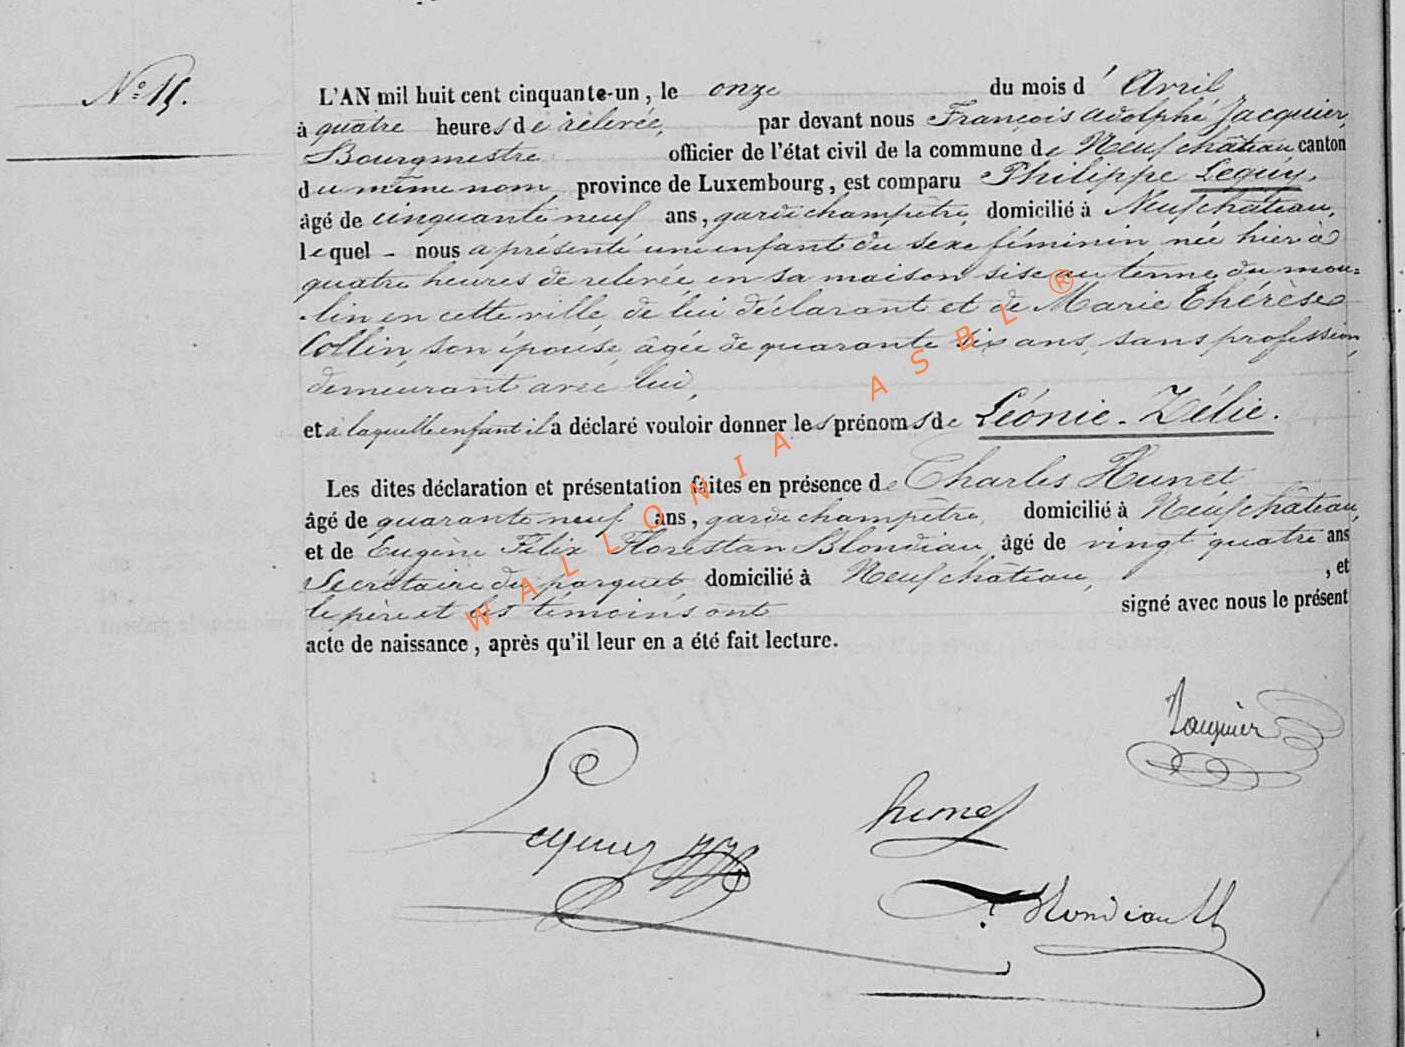 N° 15.
L'AN mil huit cent cinquante-un, le onze du mois d'Avril
à quatre heures de relevée, par devant nous François Adolphe Jacquier,
Bourgmestre officier de l'état civil de la commune de Neufchâteau canton
du même nom province de Luxembourg, est comparu Philippe Lequy,
âgé de cinquante neuf ans, garde champêtre domicilié à Neufchâteau,
lequel - nous a présenté une enfant du sexe féminin née hier à
quatre heures de relevée en sa maison sise au terme du mou=
lin en cette ville de lui déclarant et de Marie Thérèse
Collin, son épouse, âgée de quarante six ans, sans profession,
demeurant avec lui,
et à laquelle enfant il a déclaré vouloir donner les prénoms de Léonie-Zélie.
Les dites déclaration et présentation faites en présence de Charles Hunet
âgé de quarante neuf ans, garde champêtre, domicilié à Neufchâteau,
et de Eugène Félix Florestan Blondiau âgé de vingt quatre ans
Secrétaire du parquet, domicilié à Neufchâteau, , et
le père et les témoins ont signé avec nous le présent
acte de naissance, après qu'il leur en a été fait lecture.
Jacquier
Lequy
hunet
Blondiau
WALLONIA ASBL ®